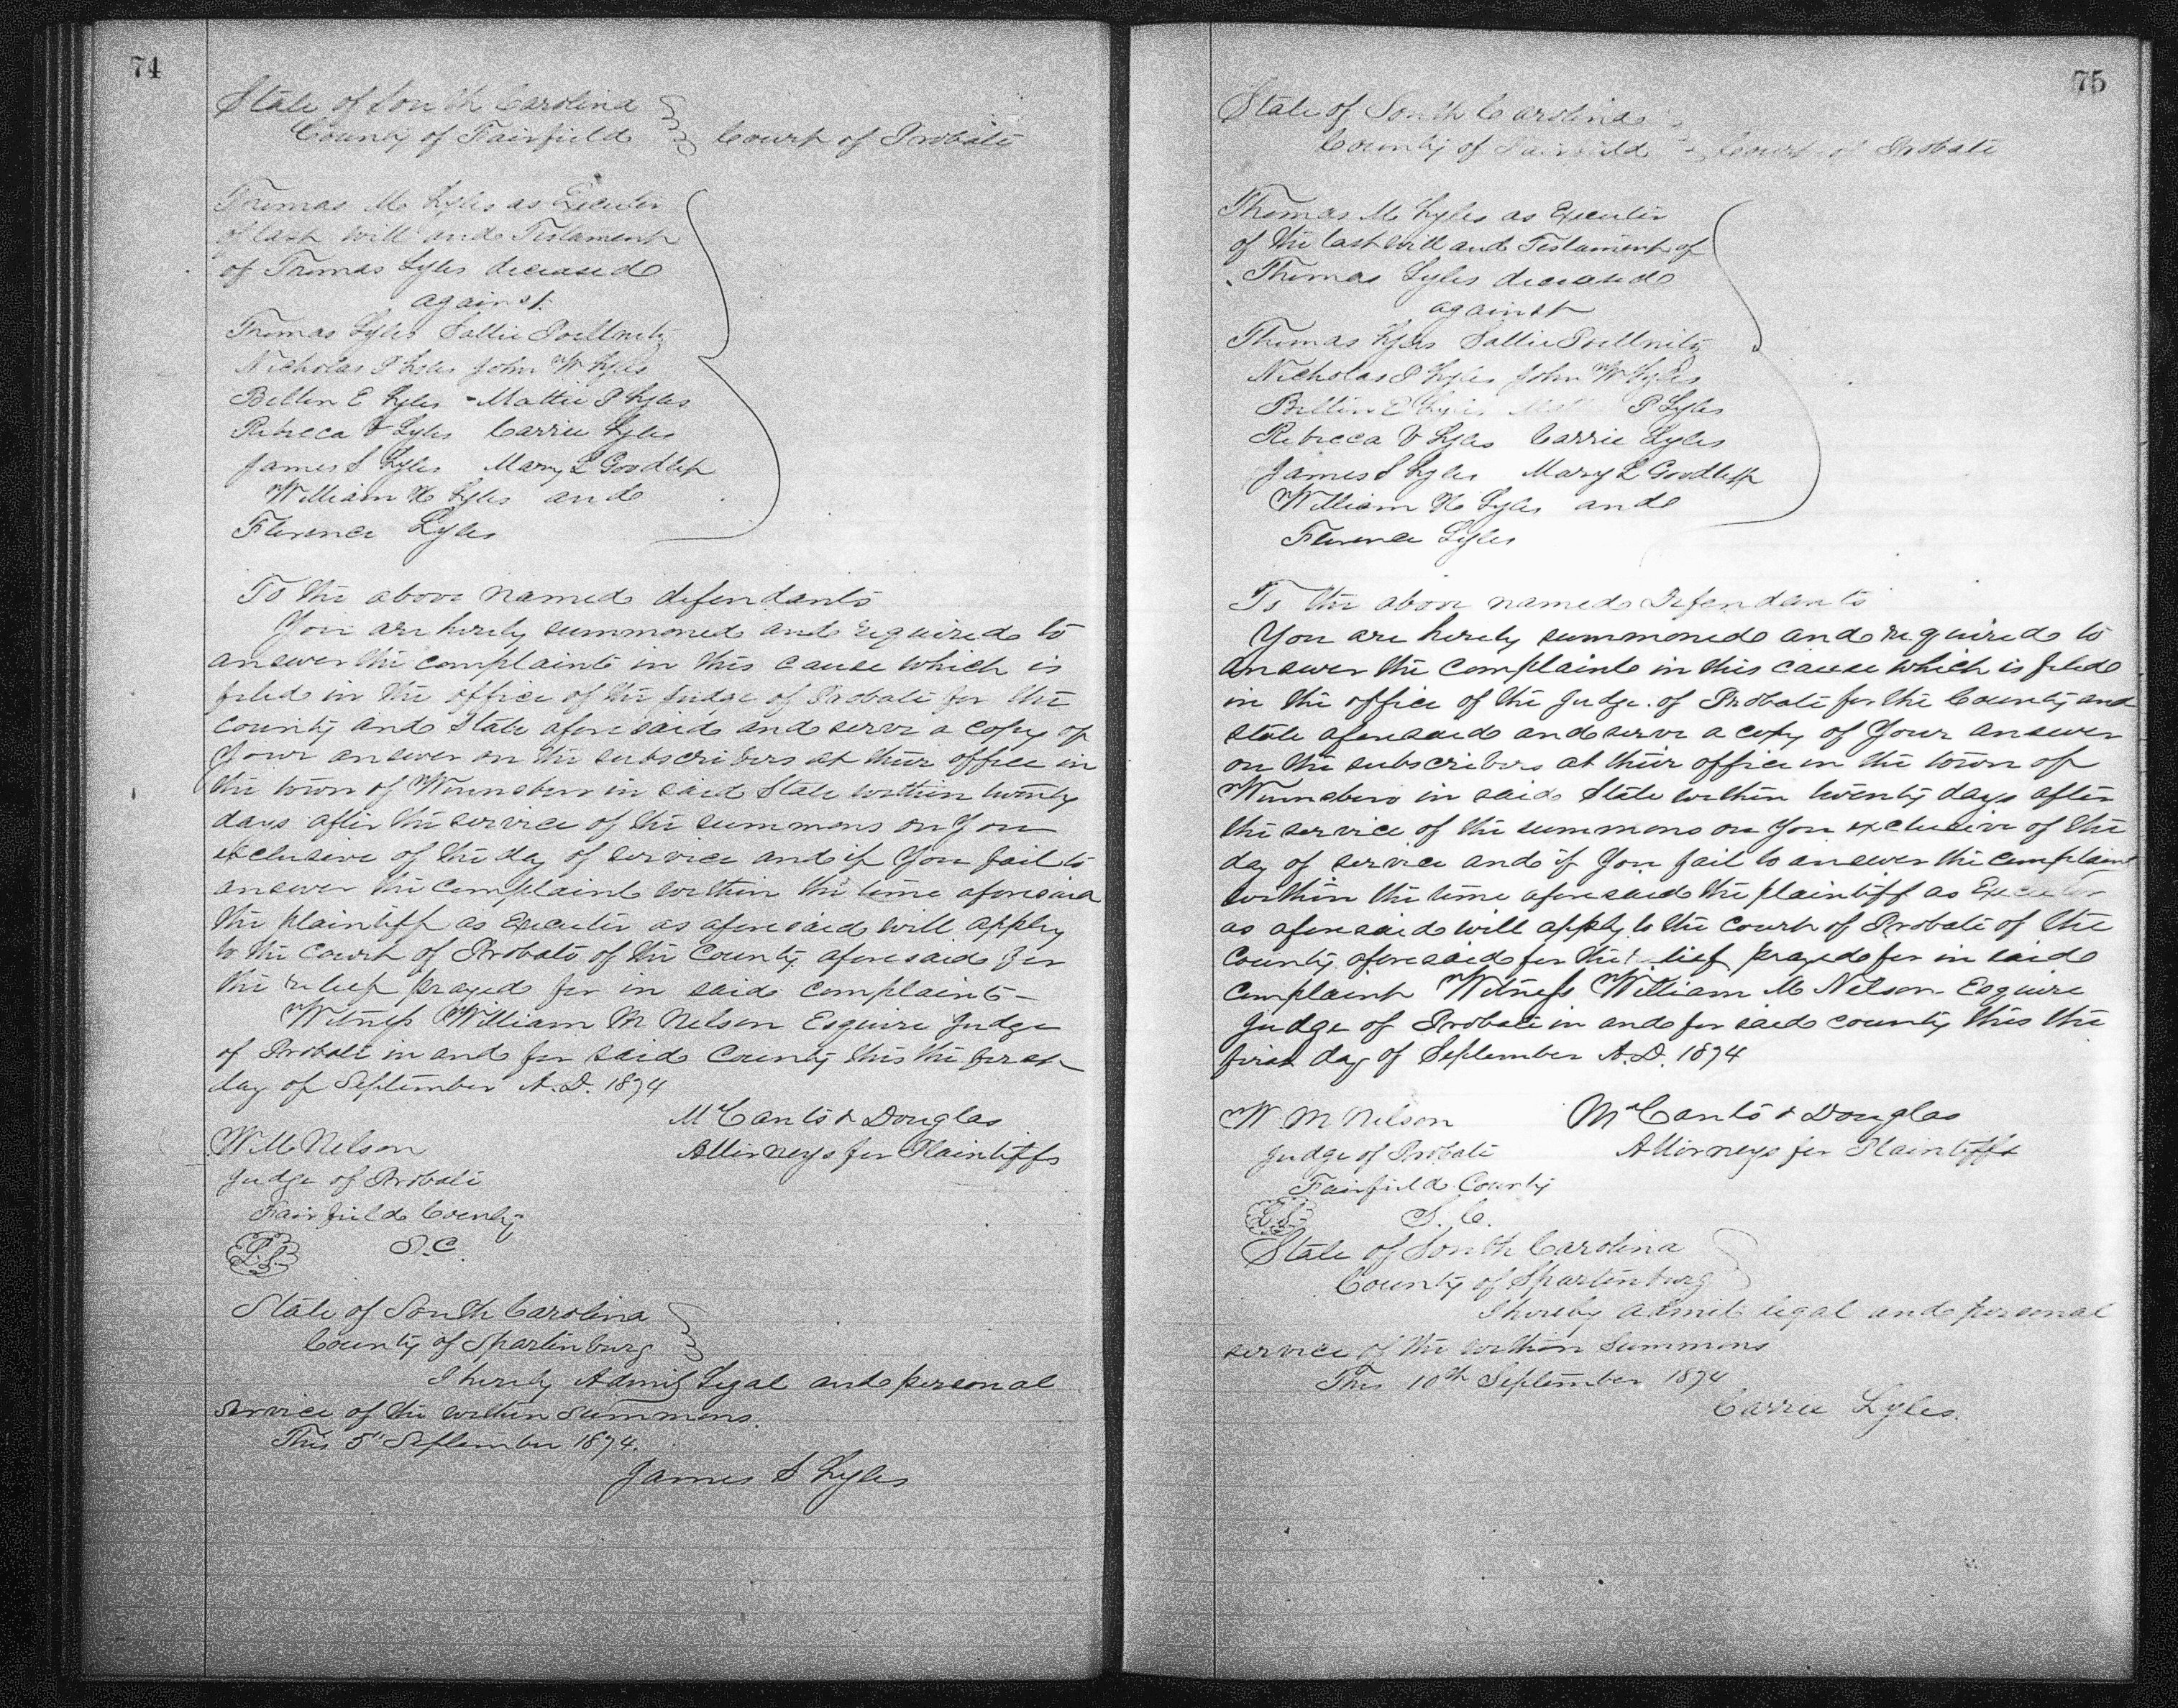 74
State of South Carolina
County of Fairfield Court of Probate
Thomas M Lyles as Executor
of last will and Testament
of Thomas Lyles deceased
against
Thomas Lyles Sallie Poellnitz
Nicholas P Lyles John W Lyles
E Lyles - Mattie P Lyles
Rebecca V Lyles Carrie Lyles
James S Lyles Mary L Goodlett
William H Lyles and
Florence Lyles
To the above named defendants
You are hereby summoned and required to
answer the complaint in this cause which is
filed in the office of the Judge of Probate for the
county and State aforesaid and serve a copy of
Your answer on the subscribers at their office in
the town of Winnsboro in said State within twenty
days after the service of the summons on You
exclusive of the day of service and if You fail to
answer the complaint within the time aforesaid
the plaintiff as Executor as aforesaid will apply
to the Court of Probate of the County aforesaid for
the relief prayed for in said complaint -
Witness William M Nelson Esquire Judge
of Probate in and for said County this the first
day of September A.D. 1874
McCants & Douglas
W M Nelson Attorneys for Plaintiffs
Judge of Probate
Fairfield County
L.S. S.C.
State of South Carolina
County of Spartinburg
I hereby Admit Legal and personal
service of the within summons.
This 5th September 1874.
James S Lyles
75
State of South Carolina
County of Fairfield Court of Probate
Thomas M Lyles as Executor
of the last will and Testament of
Thomas Lyles deceased
against
Thomas Lyles Sallie Poellnitz
Nicholas P Lyles John W Lyles
E Lyles P Lyles
Rebecca V Lyles Carrie Lyles
James S Lyles Mary L Goodlett
William H Lyles and
Florence Lyles
To the above named Defendants
You are hereby summoned and required to
answer the complaint in this cause which is filed
in the office of the Judge of Probate for the County and
State aforesaid and serve a copy of Your answer
on the subscribers at their office in the town of
Winnsboro in said State within twenty days after
the service of the summons on You exclusive of the
day of service and if You fail to answer the complaint
within the time aforesaid the plaintiff as Executor
as aforesaid will apply to the Court of Probate of the
County aforesaid for the relief prayed for in said
complaint Witness William M Nelson Esquire
Judge of Probate in and for said county this the
first day of September A.D. 1874
W M Nelson McCants & Douglas
Judge of Probate Attorneys for Plaintiffs
Fairfield County
L.S. S.C.
State of South Carolina
County of Spartinburg
I hereby admit legal and personal
service of the within summons
This 10th September 1874
Carrie Lyles.